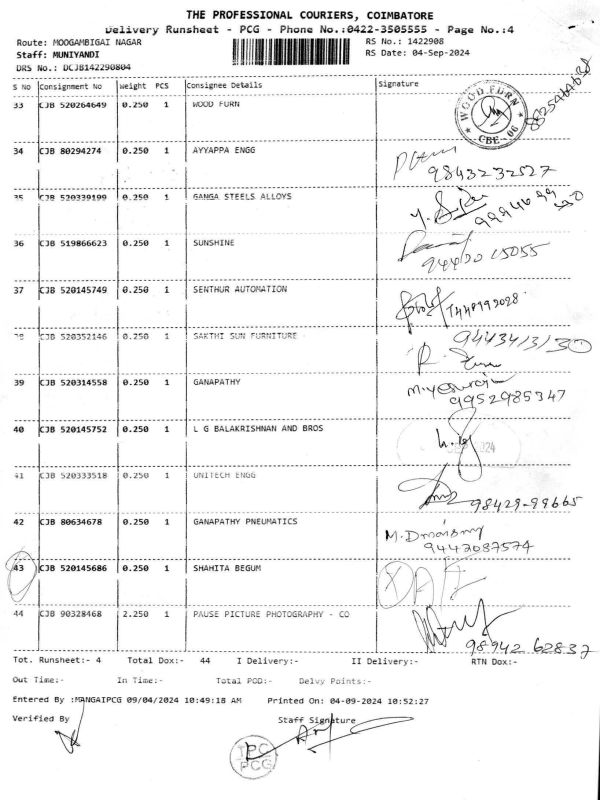 THE PROFESSIONAL COURIERS, COIMBATORE
Delivery Runsheet - PCG - Phone No.:0422-3505555 - Page No.:4
Route: MOOGAMBIGAI NAGAR RS No.: 1422908
Staff: MUNIYANDI RS Date: 04-Sep-2024
DRS No.: DCJB142290804
S No Consignment No Weight PCS Consignee Details Signature
33 CJB 520264649 0.250 1 WOOD FURN
WOOD FURN CBE-06
34 CJB 80294274 0.250 1 AYYAPPA ENGG
9843232527
35 CJB 520339199 0.250 1 GANGA STEELS ALLOYS
36 CJB 519866623 0.250 1 SUNSHINE
37 CJB 520145749 0.250 1 SENTHUR AUTOMATION
38 CJB 520352146 0.250 1 SAKTHI SUN FURNITURE
9443413130
39 CJB 520314558 0.250 1 GANAPATHY
9952985347
40 CJB 520145752 0.250 1 L G BALAKRISHNAN AND BROS
41 CJB 520333518 0.250 1 UNITECH ENGG
98429-99665
42 CJB 80634678 0.250 1 GANAPATHY PNEUMATICS
9442087574
43 CJB 520145686 0.250 1 SHAHITA BEGUM
44 CJB 90328468 2.250 1 PAUSE PICTURE PHOTOGRAPHY - CO
98942 62837
Tot. Runsheet:- 4 Total Dox:- 44 I Delivery:- II Delivery:- RTN Dox:-
Out Time:- In Time:- Total POD:- Delvy Points:-
Entered By :MANGAIPCG 09/04/2024 10:49:18 AM Printed On: 04-09-2024 10:52:27
Verified By Staff Signature
TPC
PCG